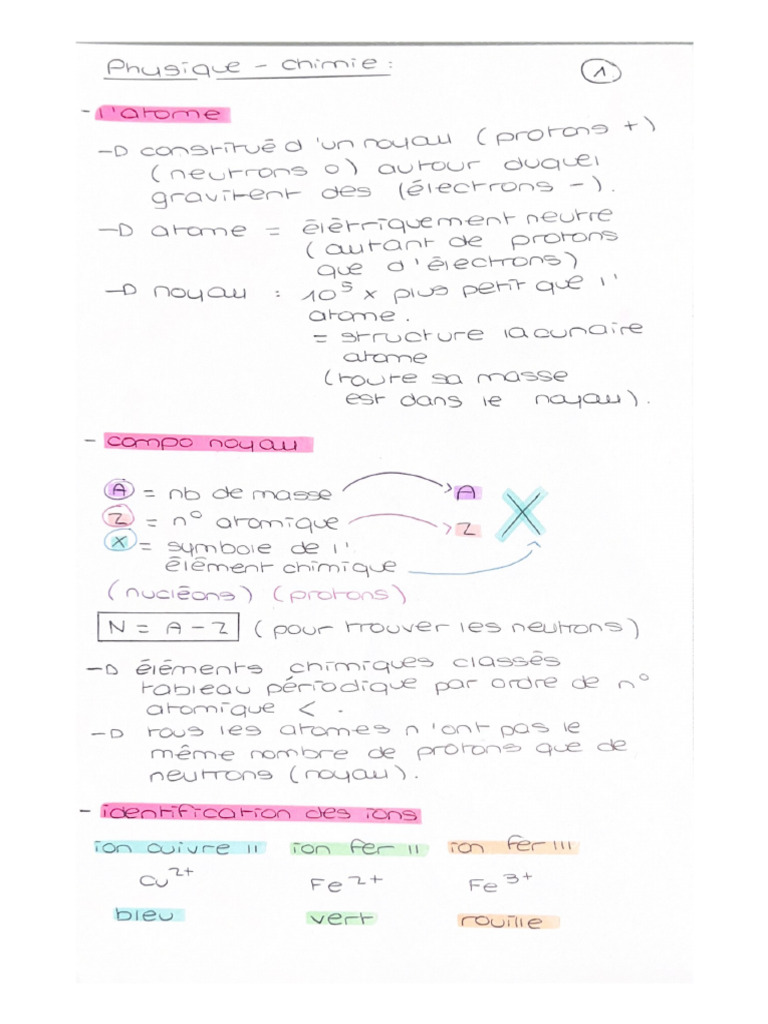 Physique - chimie :
1
- l'atome
→ constitué d'un noyau (protons +)
(neutrons 0) autour duquel
gravitent des (électrons -).
→ atome = élètriquement neutre
(autant de protons
que d'électrons)
→ noyau : 10⁵ x plus petit que l'
atome.
= structure lacunaire
atome
(toute sa masse
est dans le noyau).
- compo noyau
A = nb de masse → A
Z = n° atomique → Z X
X = symbole de l'
élément chimique
(nucléons) (protons)
N = A - Z (pour trouver les neutrons)
→ éléments chimiques classés
tableau périodique par ordre de n°
atomique < .
→ tous les atomes n'ont pas le
même nombre de protons que de
neutrons (noyau).
- identification des ions
ion cuivre II ion fer II ion fèr III
Cu²⁺ Fe²⁺ Fe³⁺
bleu vert rouille